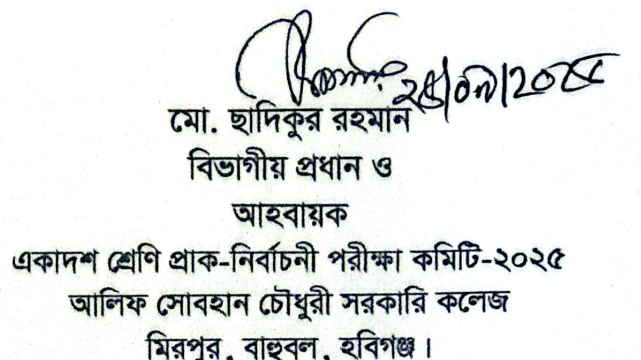 মো. ছাদিকুর রহমান
বিভাগীয় প্রধান ও
আহবায়ক
একাদশ শ্রেণি প্রাক-নির্বাচনী পরীক্ষা কমিটি-২০২৫
আলিফ সোবহান চৌধুরী সরকারি কলেজ
মিরপুর, বাহুবল, হবিগঞ্জ।